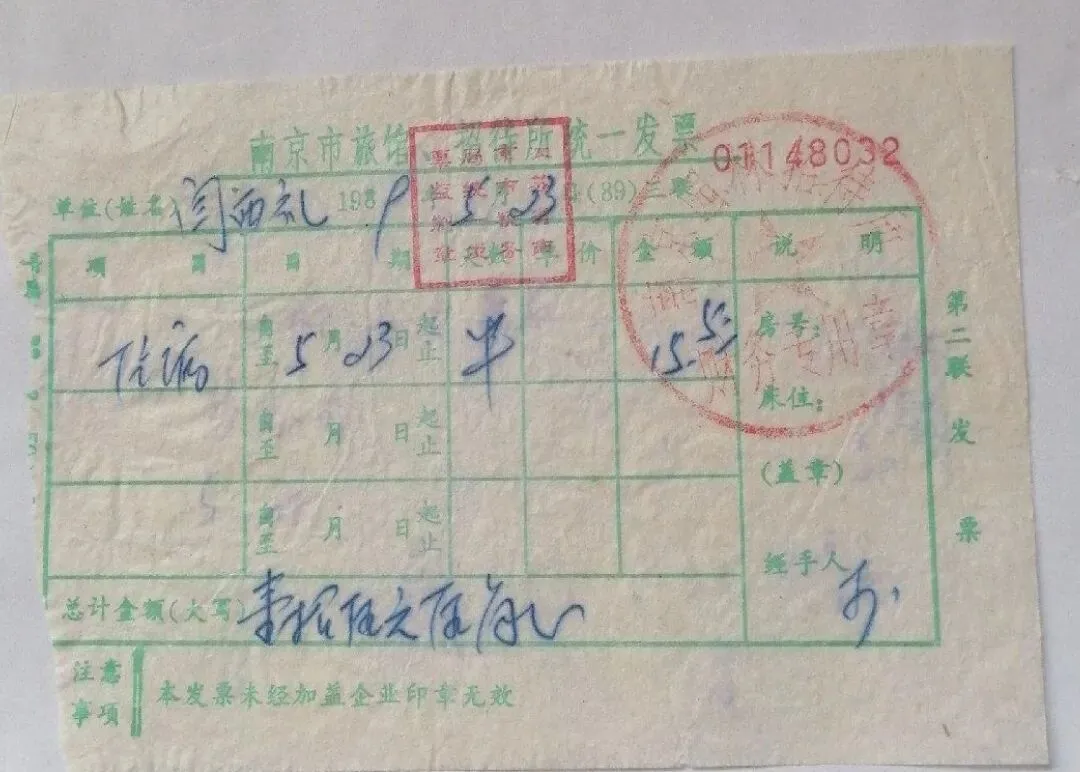 南京市旅馆、招待所统一发票
01148032
单位(姓名) 闫西礼 1989 5 23 (89)三联
项目 日期 天数 单价 金额 说明
自至 5月23日 起止 半 15.50 房号:
床位:
自至 月 日 起止
(盖章)
自至 月 日 起止
经手人
总计金额(大写) 壹拾伍元伍角
注意事项 本发票未经加盖企业印章无效
第二联 发票
财务专用章